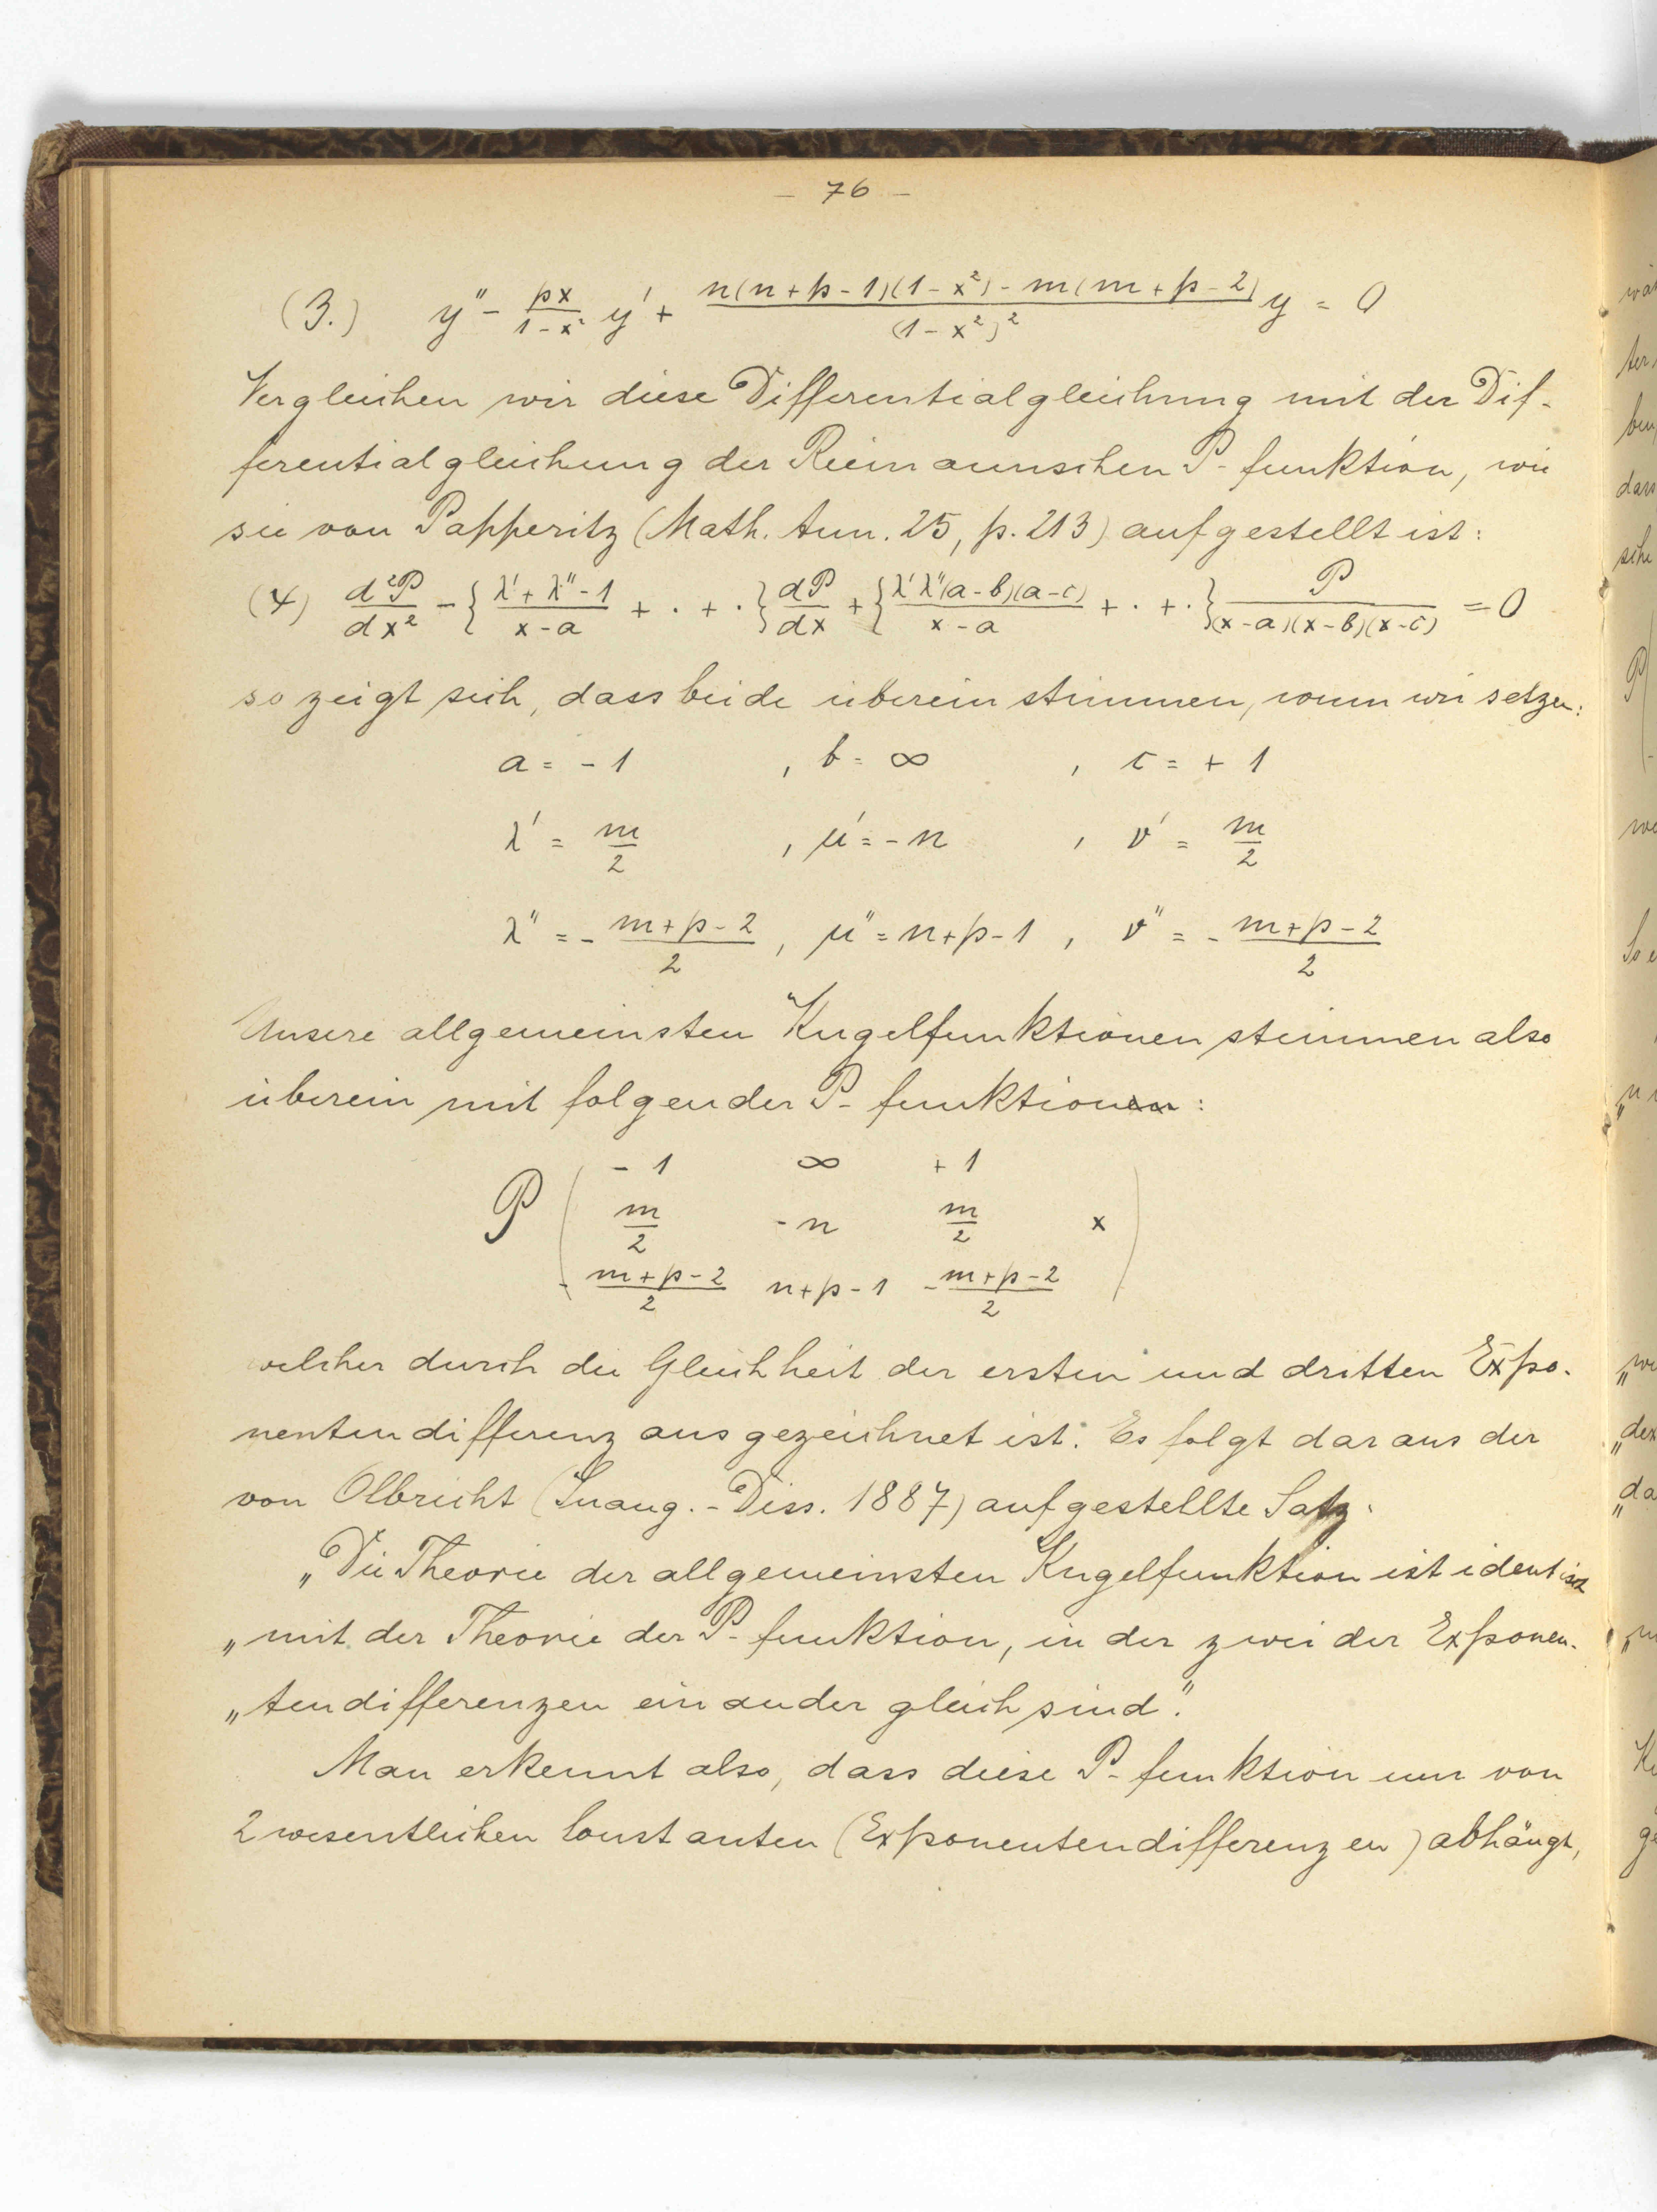 – 76 –
(3.) y'' - \frac{px}{1-x^2} y' + \frac{n(n+p-1)(1-x^2) - m(m+p-2)}{(1-x^2)^2} y = 0
Vergleichen wir diese Differentialgleichung mit der Dif-
ferentialgleichung der Riemannschen P-funktion, wie
sie von Papperitz (Math. Ann. 25, p. 213) aufgestellt ist:
(4) \frac{d^2P}{dx^2} - \{ \frac{λ'+λ''-1}{x-a} + . + . \} \frac{dP}{dx} + \{ \frac{λ'λ''(a-b)(a-c)}{x-a} + . + . \} \frac{P}{(x-a)(x-b)(x-c)} = 0
so zeigt sich, dass beide übereinstimmen, wenn wir setzen:
a = -1 , b = ∞ , c = +1
λ' = \frac{m}{2} , μ' = -n , ν' = \frac{m}{2}
λ'' = - \frac{m+p-2}{2} , μ'' = n+p-1 , ν'' = - \frac{m+p-2}{2}
Unsere allgemeinsten Kugelfunktionen stimmen also
überein mit folgender P-funktion:
P ( -1 ∞ +1
\frac{m}{2} -n \frac{m}{2} x
- \frac{m+p-2}{2} n+p-1 - \frac{m+p-2}{2} )
welcher durch die Gleichheit der ersten und dritten Expo-
nentendifferenz ausgezeichnet ist. Es folgt daraus der
von Olbricht (Inaug.-Diss. 1887) aufgestellte Satz:
„Die Theorie der allgemeinsten Kugelfunktion ist identisch
„mit der Theorie der P-funktion, in der zwei der Exponen-
„tendifferenzen einander gleich sind."
Man erkennt also, dass diese P-funktion nur von
2 wesentlichen Constanten (Exponentendifferenzen) abhängt,